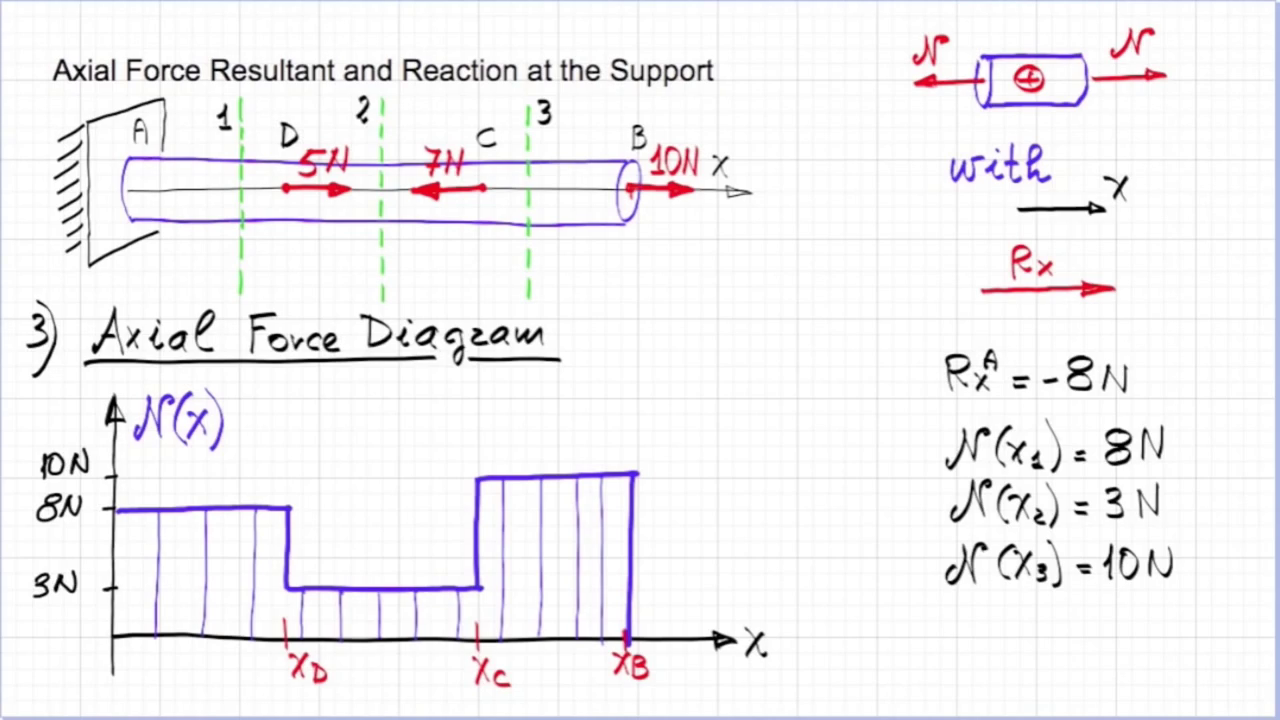 Axial Force Resultant and Reaction at the Support
A 1 D 2 C 3 B
5N 7N 10N X
3) Axial Force Diagram
N(x)
10N
8N
3N
X_D X_C X_B X
N ⊕ N
with
X
Rx
Rx^A = -8N
N(x₁) = 8N
N(x₂) = 3N
N(x₃) = 10N